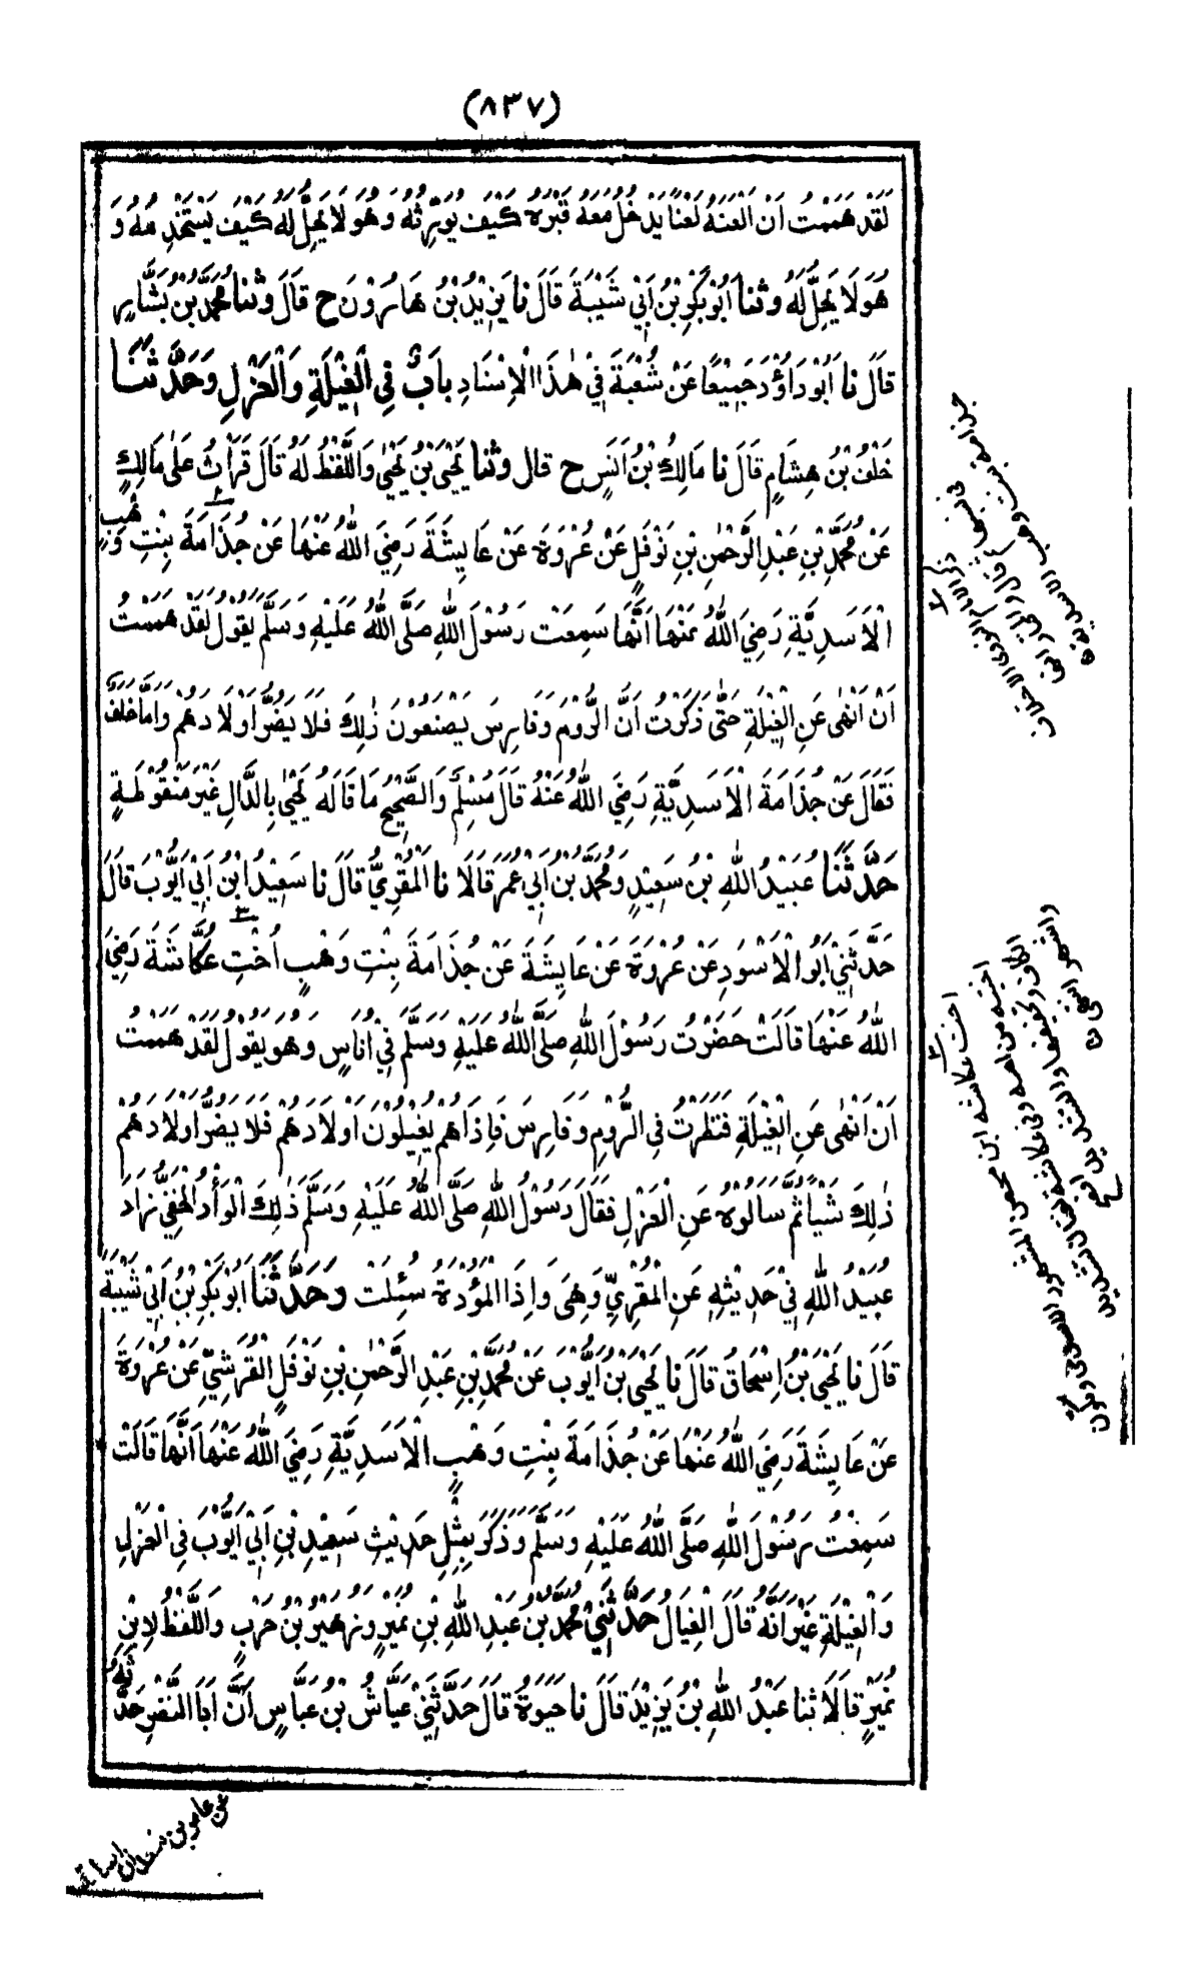 (٨٣٧)
لَقَدْ هَمَمْتُ اَنْ اَلْعَنَهُ لَعْنًا يَدْخُلُ مَعَهُ قَبْرَهُ كَيْفَ يُوَرِّثُهُ وَهُوَ لَا يَحِلُّ لَهُ كَيْفَ يَسْتَخْدِمُهُ وَ
هُوَ لَا يَحِلُّ لَهُ وثنا اَبُوْ بَكْرِ بْنُ اَبِيْ شَيْبَةَ قَالَ نا يَزِيْدُ بْنُ هَارُوْنَ ح قَالَ وثنا مُحَمَّدُ بْنُ بَشَّارٍ
قَالَ نا اَبُوْ دَاوُدَ جَمِيْعًا عَنْ شُعْبَةَ فِيْ هٰذَا الْاِسْنَادِ بابٌ فِي الْغِيْلَةِ وَالْعَزْلِ وَحَدَّثَنَا
خَلْفُ بْنُ هِشَامٍ قَالَ نا مَالِكُ بْنُ اَنَسٍ ح قال وثنا يَحْيَى بْنُ يَحْيٰى وَاللَّفْظُ لَهُ قَالَ قَرَأْتُ عَلٰى مَالِكٍ
عَنْ مُحَمَّدِ بْنِ عَبْدِ الرَّحْمٰنِ بْنِ نَوْفَلٍ عَنْ عُرْوَةَ عَنْ عَايِشَةَ رَضِيَ اللّٰهُ عَنْهَا عَنْ جُذَامَةَ بِنْتِ وَهْبٍ
الْاَسَدِيَّةِ رَضِيَ اللّٰهُ عَنْهَا اَنَّهَا سَمِعَتْ رَسُوْلَ اللّٰهِ صَلَّى اللّٰهُ عَلَيْهِ وَسَلَّمَ يَقُوْلُ لَقَدْ هَمَمْتُ
اَنْ اَنْهٰى عَنِ الْغِيْلَةِ حَتّٰى ذَكَرْتُ اَنَّ الرُّوْمَ وَفَارِسَ يَصْنَعُوْنَ ذٰلِكَ فَلَا يَضُرُّ اَوْلَادَهُمْ وَاَمَّا خَلَفٌ
فَقَالَ عَنْ جُذَامَةَ الْاَسَدِيَّةِ رَضِيَ اللّٰهُ عَنْهُ قَالَ مُسْلِمٌ وَالصَّحِيْحُ مَا قَالَهُ يَحْيٰى بِالدَّالِ غَيْرَ مَنْقُوْطَةٍ
حَدَّثَنَا عُبَيْدُ اللّٰهِ بْنُ سَعِيْدٍ وَمُحَمَّدُ بْنُ اَبِيْ عُمَرَ قَالَا نا الْمُقْرِئُ قَالَ نا سَعِيْدُ ابْنُ اَبِيْ اَيُّوْبَ قَالَ
حَدَّثَنِيْ اَبُو الْاَسْوَدِ عَنْ عُرْوَةَ عَنْ عَايِشَةَ عَنْ جُذَامَةَ بِنْتِ وَهْبٍ اُخْتِ عُكَّاشَةَ رَضِيَ
اللّٰهُ عَنْهَا قَالَتْ حَضَرْتُ رَسُوْلَ اللّٰهِ صَلَّى اللّٰهُ عَلَيْهِ وَسَلَّمَ فِيْ اُنَاسٍ وَهُوَ يَقُوْلُ لَقَدْ هَمَمْتُ
اَنْ اَنْهٰى عَنِ الْغِيْلَةِ فَنَظَرْتُ فِي الرُّوْمِ وَفَارِسَ فَاِذَا هُمْ يُغِيْلُوْنَ اَوْلَادَهُمْ فَلَا يَضُرُّ اَوْلَادَهُمْ
ذٰلِكَ شَيْئًا ثُمَّ سَاَلُوْهُ عَنِ الْعَزْلِ فَقَالَ رَسُوْلُ اللّٰهِ صَلَّى اللّٰهُ عَلَيْهِ وَسَلَّمَ ذٰلِكَ الْوَأْدُ الْخَفِيُّ زَادَ
عُبَيْدُ اللّٰهِ فِيْ حَدِيْثِهِ عَنِ الْمُقْرِيِّ وَهِيَ وَاِذَا الْمَوْءُدَةُ سُئِلَتْ وَحَدَّثَنَا اَبُوْ بَكْرِ بْنُ اَبِيْ شَيْبَةَ
قَالَ نا يَحْيَى بْنُ اِسْحَاقَ قَالَ نا يَحْيَى بْنُ اَيُّوْبَ عَنْ مُحَمَّدِ بْنِ عَبْدِ الرَّحْمٰنِ بْنِ نَوْفَلٍ الْقُرَشِيِّ عَنْ عُرْوَةَ
عَنْ عَايِشَةَ رَضِيَ اللّٰهُ عَنْهَا عَنْ جُذَامَةَ بِنْتِ وَهْبٍ الْاَسَدِيَّةِ رَضِيَ اللّٰهُ عَنْهَا اَنَّهَا قَالَتْ
سَمِعْتُ رَسُوْلَ اللّٰهِ صَلَّى اللّٰهُ عَلَيْهِ وَسَلَّمَ وَذَكَرَ بِمِثْلِ حَدِيْثِ سَعِيْدِ بْنِ اَبِيْ اَيُّوْبَ فِي الْعَزْلِ
وَالْغِيْلَةِ غَيْرَ اَنَّهُ قَالَ الْغِيَالُ حَدَّثَنِيْ مُحَمَّدُ بْنُ عَبْدِ اللّٰهِ بْنِ نُمَيْرٍ وَزُهَيْرُ بْنُ حَرْبٍ وَاللَّفْظُ لِابْنِ
نُمَيْرٍ قَالَا ثنا عَبْدُ اللّٰهِ بْنُ يَزِيْدَ قَالَ نا حَيْوَةُ قَالَ حَدَّثَنِيْ عَيَّاشُ بْنُ عَبَّاسٍ اَنَّ اَبَا النَّضْرِ حَدَّثَهُ
جذامة بنت وهب الاسدية
اخت عكاشه ابن محصن المشهور الاسدي
عن عامر بن